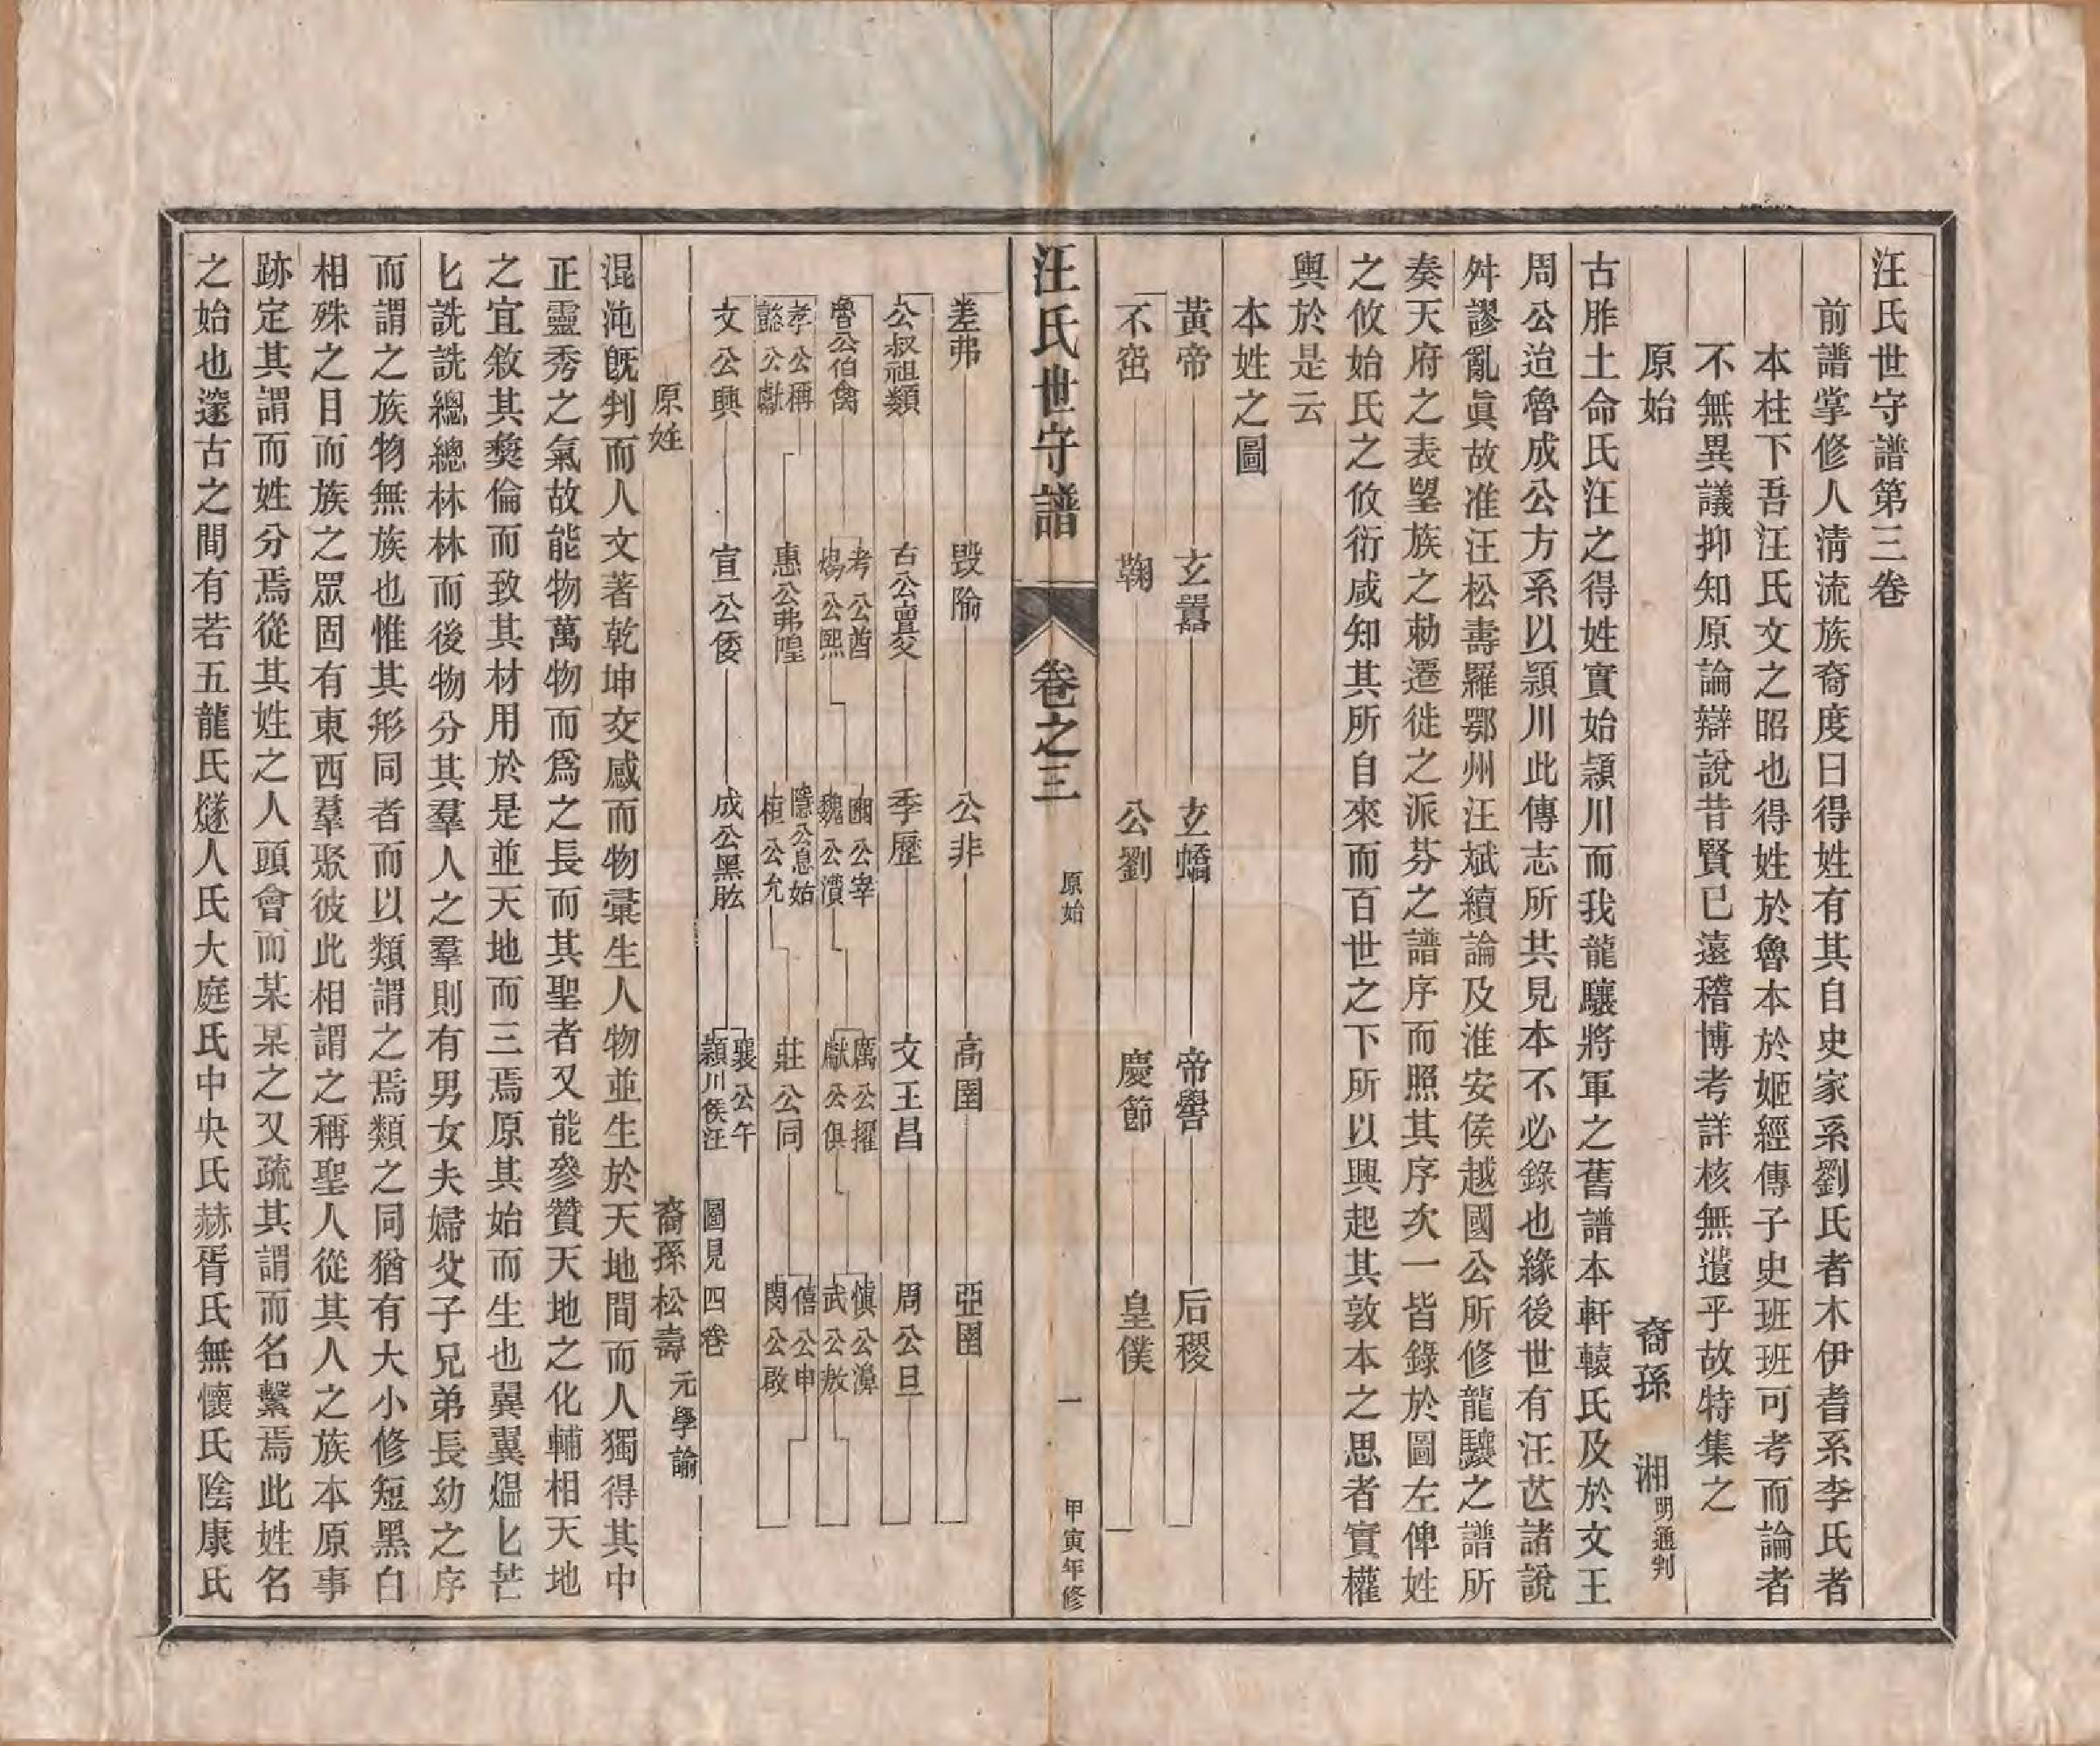 汪氏世守譜第三卷
前譜掌修人清流族裔度曰得姓有其自史家系劉氏者木伊耆系李氏者
本柱下吾汪氏文之昭也得姓於魯本於姬經傳子史班班可考而論者
不無異議抑知原論辯說昔賢已遠稽博考詳核無遺乎故特集之
原始　裔孫　湘　明通判
古胙土命氏汪之得姓實始潁川而我龍驤將軍之舊譜本軒轅氏及於文王
周公迨魯成公方系以潁川此傳志所共見本不必錄也緣後世有汪芒諸說
舛謬亂眞故准汪松壽羅鄂州汪斌續論及淮安侯越國公所修龍驤之譜所
奏天府之表望族之勅遷徙之派芬之譜序而照其序次一皆錄於圖左俾姓
之攸始氏之攸衍咸知其所自來而百世之下所以興起其敦本之思者實權
輿於是云
本姓之圖
黃帝　玄囂　玄蟜　帝嚳　后稷
不窋　鞠　公劉　慶節　皇僕
汪氏世守譜　卷之三　原始　一　甲寅年修
差弗　毀隃　公非　高圉　亞圉
公叔祖類　古公亶父　季歷　文王昌　周公旦
魯公伯禽　考公酋　煬公熙　幽公宰　魏公㵒　厲公擢　獻公俱　愼公濞　武公敖
孝公稱　懿公戲　惠公弗湟　隱公息姑　桓公允　莊公同　僖公申　閔公啟
文公興　宣公倭　成公黑肱　襄公午　潁川侯汪　圖見四卷
原姓　裔孫松壽　元學諭
混沌旣判而人文著乾坤交感而物彙生人物並生於天地間而人獨得其中
正靈秀之氣故能物萬物而爲之長而其聖者又能參贊天地之化輔相天地
之宜敘其彝倫而致其材用於是並天地而三焉原其始而生也翼翼熅匕芒
匕詵詵總總林林而後物分其羣人之羣則有男女夫婦父子兄弟長幼之序
而謂之族物無族也惟其形同者而以類謂之焉類之同猶有大小修短黑白
相殊之目而族之眾固有東西羣聚彼此相謂之稱聖人從其人之族本原事
跡定其謂而姓分焉從其姓之人頭會而某某之又疏其謂而名繫焉此姓名
之始也邃古之間有若五龍氏燧人氏大庭氏中央氏赫胥氏無懷氏陰康氏